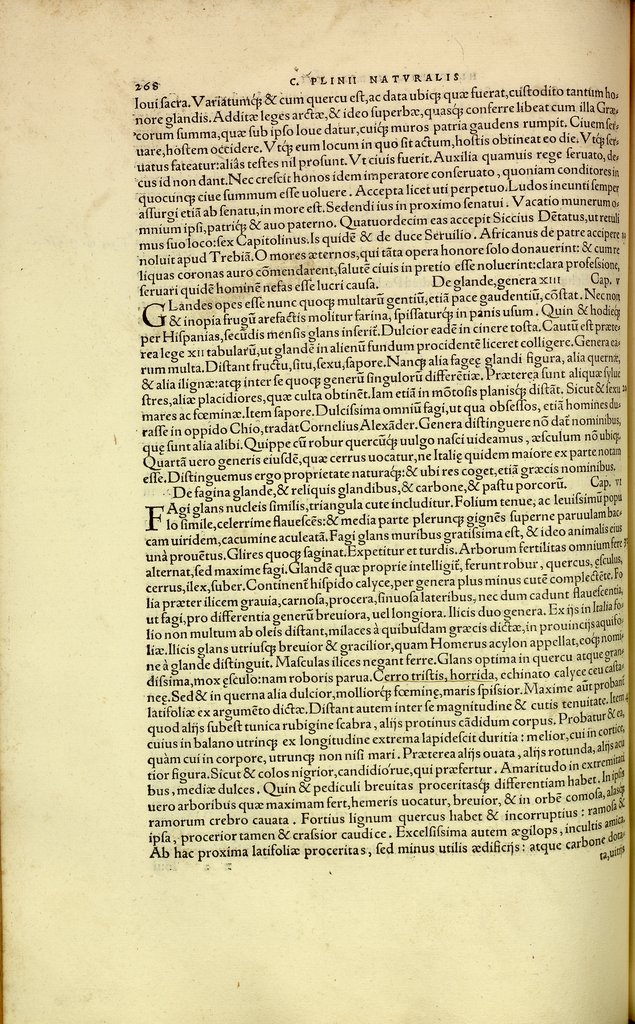 268
C. PLINII NATVRALIS
Ioui sacra. Variatumq́; & cum quercu est, ac data ubiq; quæ fuerat, custodito tantum ho-
nore glandis. Additæ leges arctæ, & ideo superbæ, quasq; conferre libeat cum illa Græ-
corum summa, quæ sub ipso Ioue datur, cuiq; muros patria gaudens rumpit. Ciuem ser-
uare, hostem occidere. Vtq; eum locum in quo sit actum, hostis obtineat eo die. Vtq; ser-
uatus fateatur: aliâs testes nil prosunt. Vt ciuis fuerit. Auxilia quamuis rege seruato, de-
cus id non dant. Nec crescit honos idem imperatore conseruato, quoniam conditores in
quocunq; ciue summum esse uoluere. Accepta licet uti perpetuo. Ludos ineunti semper
assurgi etiā ab senatu, in more est. Sedendi ius in proximo senatui. Vacatio munerum o-
mnium ipsi, patriq́; & auo paterno. Quatuordecim eas accepit Siccius Dētatus, ut retuli
mus suo loco: sex Capitolinus. Is quidē & de duce Seruilio. Africanus de patre accipere
noluit apud Trebiā. O mores æternos, qui tāta opera honore solo donauerint: & cum re
liquas coronas auro cōmendarent, salutē ciuis in pretio esse noluerint: clara professione,
seruari quidē hominē nefas esse lucri causa. De glande, genera XIII Cap. v
GLandes opes esse nunc quoq; multarū gentiū, etiā pace gaudentiū, cōstat. Nec non
& inopia frugū arefactis molitur farina, spissaturq́; in panis usum. Quin & hodieq;
per Hispanias, secūdis mensis glans inserit̄. Dulcior eadē in cinere tosta. Cautū est præte-
rea lege XII tabularū, ut glandē in alienū fundum procidentē liceret colligere. Genera ea-
rum multa. Distant fructu, situ, sexu, sapore. Nanq; alia fageę glandi figura, alia querneæ,
& alia ilignæ: atq; inter se quoq; generū singulorū differētiæ. Præterea sunt aliquæ sylue
stres, aliæ placidiores, quæ culta obtinēt. Iam etiā in mōtosis planisq; distāt. Sicut & sexu
mares ac fœminæ. Item sapore. Dulcissima omniū fagi, ut qua obsessos, etiā homines du-
rasse in oppido Chio, tradat Cornelius Alexāder. Genera distinguere nō dat̄ nominibus,
quę sunt alia alibi. Quippe cū robur quercūq; uulgo nasci uideamus, æsculum nō ubiq;.
Quartā uero generis eiusdē, quæ cerrus uocatur, ne Italię quidem maiore ex parte notam
esse. Distinguemus ergo proprietate naturaq́;: & ubi res coget, etiā græcis nominibus.
De fagina glande, & reliquis glandibus, & carbone, & pastu porcorū. Cap. VI
FAgi glans nucleis similis, triangula cute includitur. Folium tenue, ac leuissimū populo
simile, celerrime flauescēs: & media parte plerunq; gignēs superne paruulam bac-
cam uiridem, cacumine aculeatā. Fagi glans muribus gratissima est, & ideo animalis eius
unà prouētus. Glires quoq; saginat. Expetitur et turdis. Arborum fertilitas omnium fere
alternat, sed maxime fagi. Glandē quæ proprie intelligit̄, ferunt robur, quercus, esculus,
cerrus, ilex, suber. Continent̄ hispido calyce, per genera plus minus cutē complectēte. Fo
lia præter ilicem grauia, carnosa, procera, sinuosa lateribus, nec dum cadunt flauescentia,
ut fagi, pro differentia generū breuiora, uel longiora. Ilicis duo genera. Ex ijs in Italia fo-
lio non multum ab oleis distant, milaces à quibusdam græcis dictæ, in prouincijs aquifo-
liæ. Ilicis glans utriusq; breuior & gracilior, quam Homerus acylon appellat, eoq́; nomi-
ne à glande distinguit. Masculas ilices negant ferre. Glans optima in quercu atque gran-
dissima, mox ęsculo: nam roboris parua. Cerro tristis, horrida, echinato calyce ceu casta-
neę. Sed & in querna alia dulcior, molliorq́; fœminę, maris spissior. Maxime aūt probant̄
latifoliæ ex argumēto dictæ. Distant autem inter se magnitudine & cutis tenuitate. Item
quod alijs subest tunica rubigine scabra, alijs protinus cādidum corpus. Probatur & ea,
cuius in balano utrinq; ex longitudine extrema lapidescit duritia: melior, cui in cortice,
quàm cui in corpore, utrunq; non nisi mari. Præterea alijs ouata, alijs rotunda, alijs acu
tior figura. Sicut & colos nigrior, candidiórue, qui præfertur. Amaritudo in extremitati
bus, mediæ dulces. Quin & pediculi breuitas proceritasq́; differentiam habet. In ipsis
uero arboribus quæ maximam fert, hemeris uocatur, breuior, & in orbē comosa, alasq́;
ramorum crebro cauata. Fortius lignum quercus habet & incorruptius: ramosa &
ipsa, procerior tamen & crassior caudice. Excelsissima autem ægilops, incultis amica.
Ab hac proxima latifoliæ proceritas, sed minus utilis ædificijs: atque carbone dota-
ta, uitijs